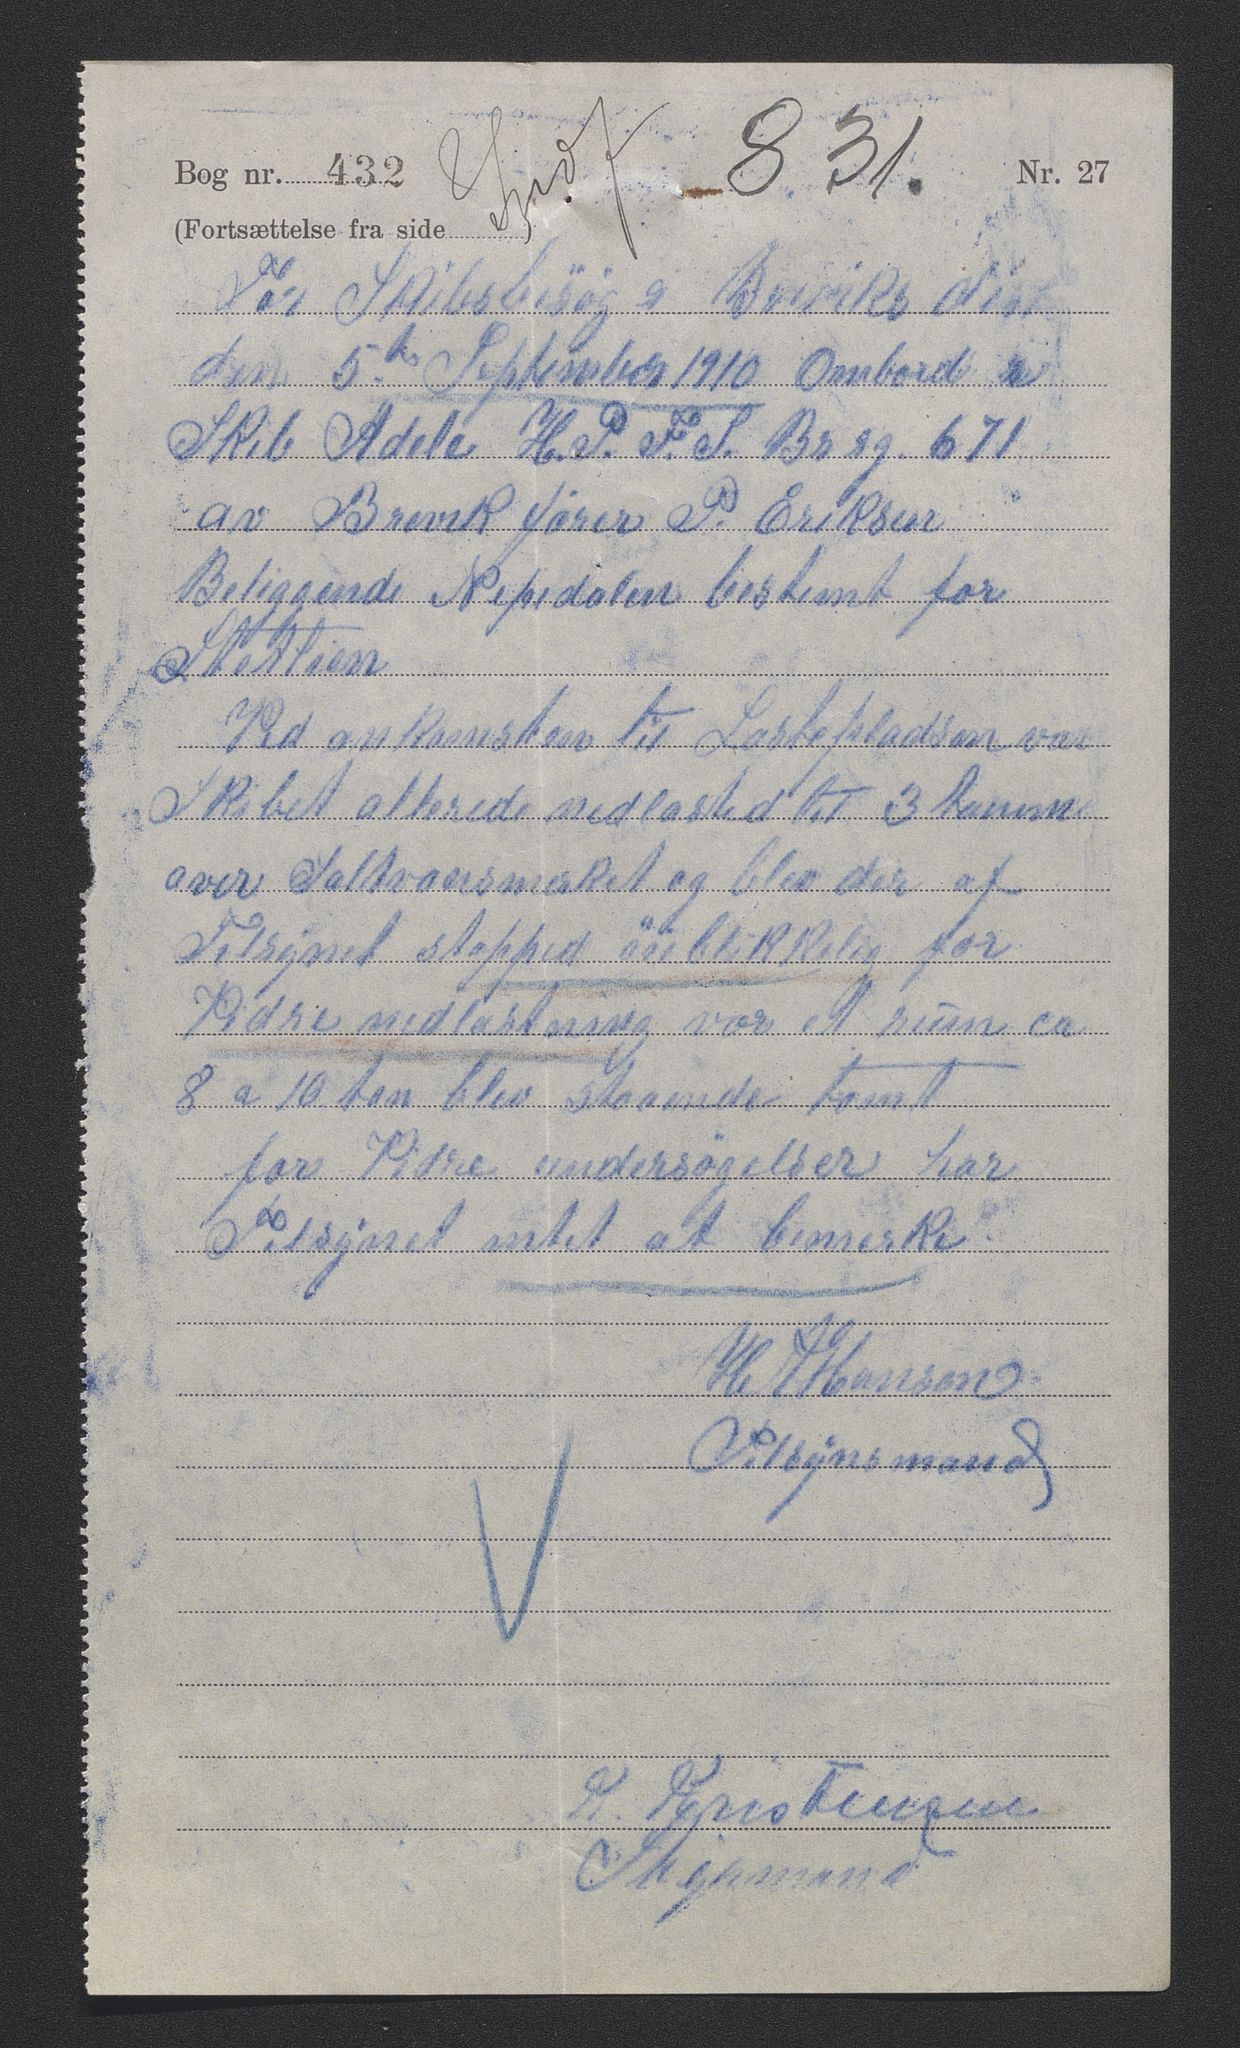 Bog nr. 432 831. Nr. 27
(Fortsættelse fra side )
För Skibsbesøg i Breviks Dist
den 5te September 1910 Ombord i
Skib Adele H.P.F.S. Br rg. 671
av Brevik fører P. Eriksen
Beliggende bestemt for
Stettien
Ved ankomsten til Lastepladsen var
Skibet allerede nedlasted til 3 tomme
over Saltvansmerket og blev der af
Tilsÿnet stopped öieblikkelig for
Vidre nedlastning vor et rüm ca
8 a 10 ton blev staaende tomt
for Vidre undersøgelser har
Tilsÿnet intet at bemerke.
Hansen
Tilsÿnsmand
K. Kristensen
Styrmand